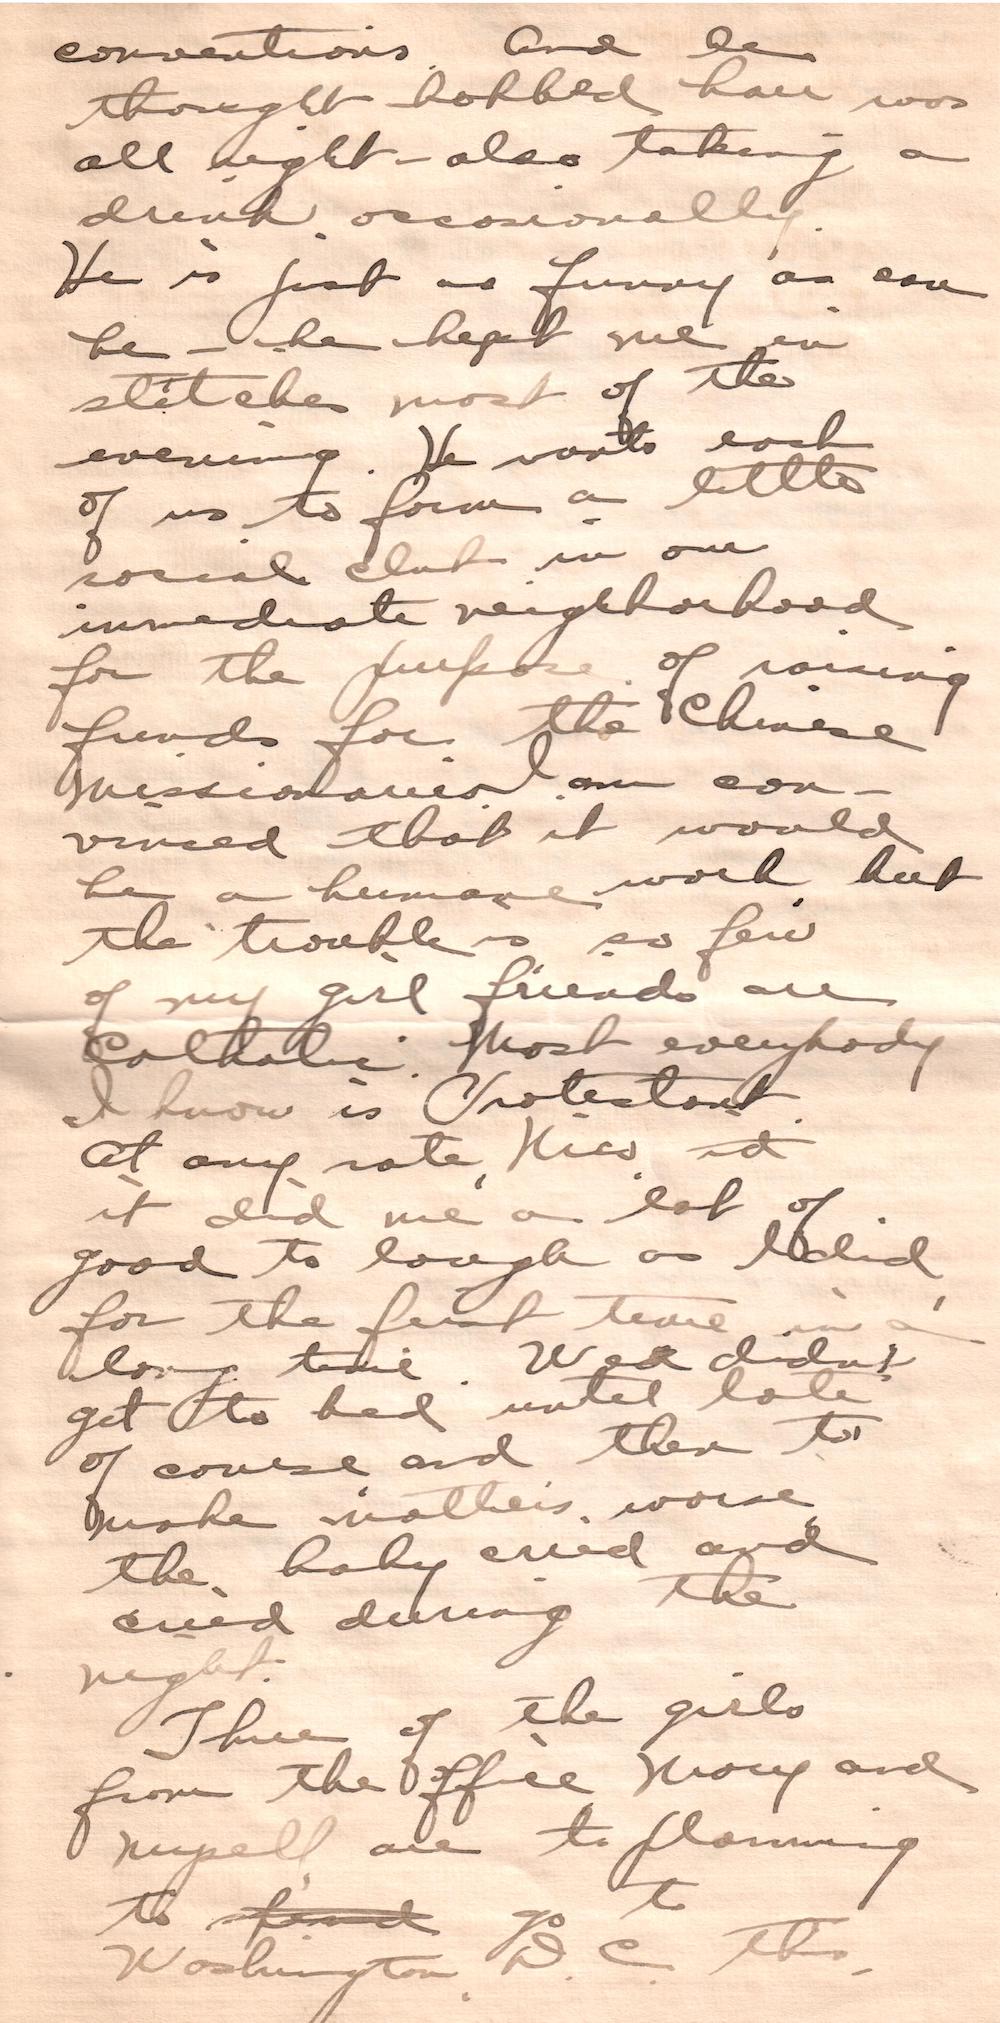 conventions. And he
thought bobbed hair was
all right - also taking a
drink occasionally.
He is just as funny as can
be - he kept me in
stitches most of the
evening. He wants each
of us to form a little
social club in our
immediate neighborhood
for the purpose of raising
funds for the Chinese
Missionaries I am con-
vinced that it would
be a humane work but
the trouble is so few
of my girl friends are
Catholic. Most everybody
I know is Protestant.
At any rate, it
it did me a lot of
good to laugh as I did,
for the first time in a
long time. We didn't
get to bed until late
of course and then to
make matters worse
the baby cried and
cried during the
night.
Three of the girls
from the office Mary and
myself are to planning
to go to
Washington D.C. this